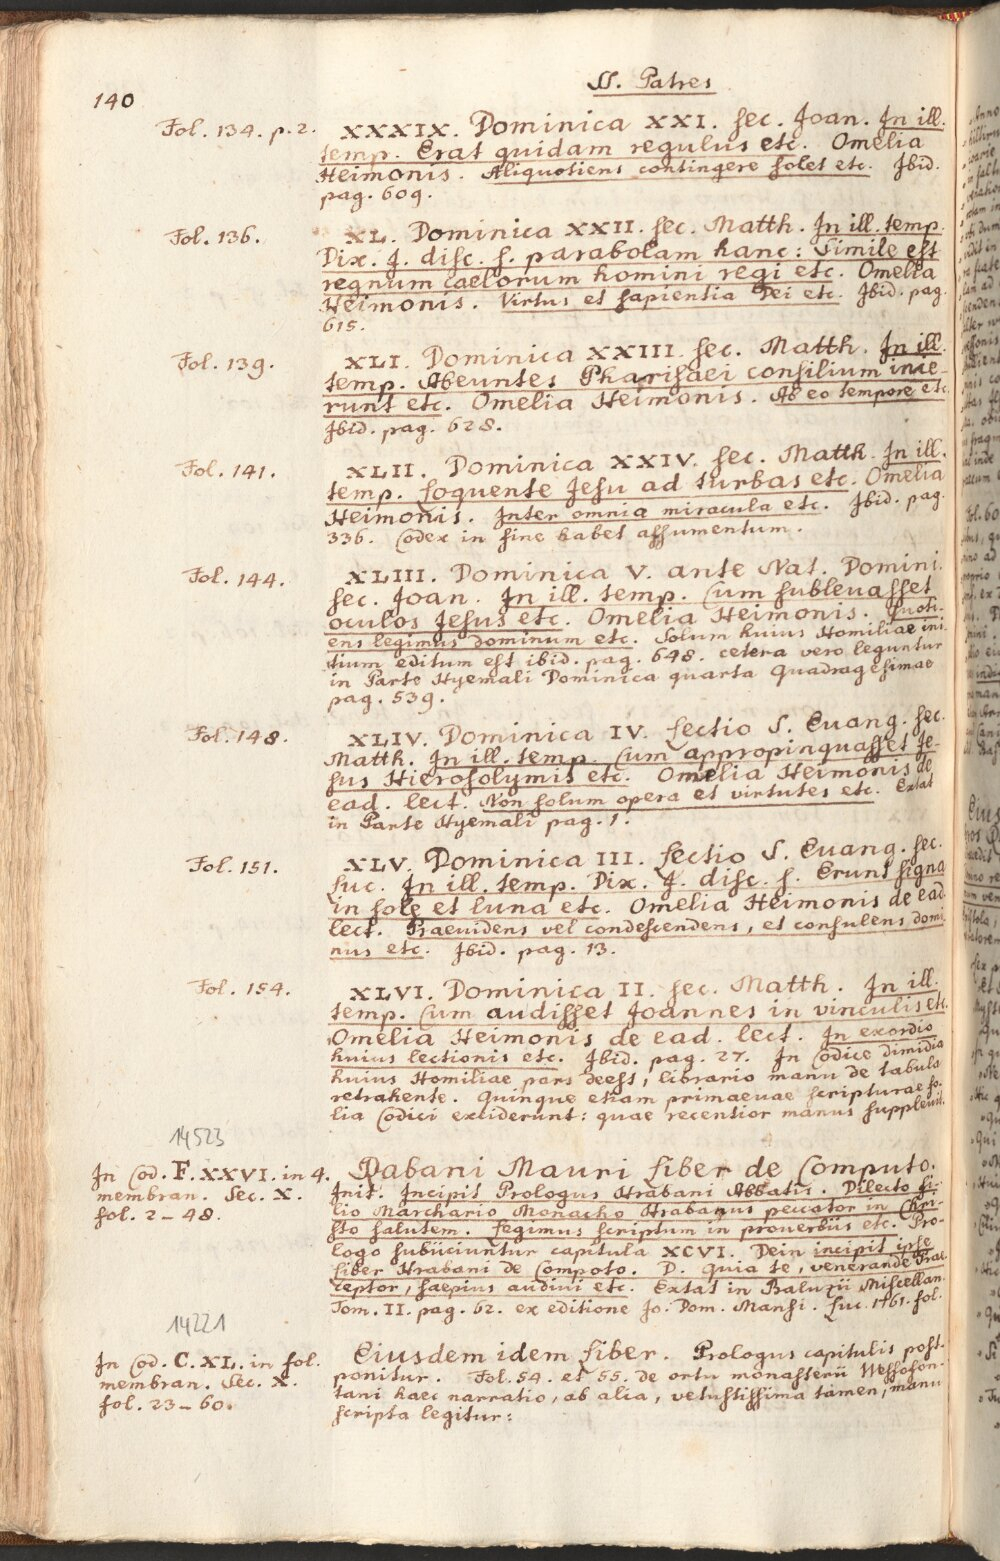 140
SS. Patres
Fol. 134. p. 2.
XXXIX. Dominica XXI. sec. Joan. In ill.
temp. Erat quidam regulus etc. Omelia
Heimonis. Aliquotiens contingere solet etc. Ibid.
pag. 609.
Fol. 136.
XL. Dominica XXII. sec. Matth. In ill. temp.
Dix. J. disc. s. parabolam hanc: Simile est
regnum caelorum homini regi etc. Omelia
Heimonis. Virtus et sapientia Dei etc. Ibid. pag.
615.
Fol. 139.
XLI. Dominica XXIII. sec. Matth. In ill.
temp. Abeuntes Pharisaei consilium inie-
runt etc. Omelia Heimonis. Ab eo tempore etc.
Ibid. pag. 628.
Fol. 141.
XLII. Dominica XXIV. sec. Matth. In ill.
temp. Loquente Jesu ad turbas etc. Omelia
Heimonis. Inter omnia miracula etc. Ibid. pag.
336. Codex in fine habet assumentum.
Fol. 144.
XLIII. Dominica V. ante Nat. Domini.
sec. Joan. In ill. temp. Cum sublevasset
oculos Jesus etc. Omelia Heimonis. Quoti-
ens legimus dominum etc. Solum huius Homiliae ini-
tium editum est ibid. pag. 648. cetera vero leguntur
in Parte Hyemali Dominica quarta Quadragesimae
pag. 539.
Fol. 148.
XLIV. Dominica IV. Lectio S. Euang. sec.
Matth. In ill. temp. Cum appropinquasset Je-
sus Hierosolymis etc. Omelia Heimonis de
ead. lect. Non solum opera et virtutes etc. Extat
in Parte Hyemali pag. 1.
Fol. 151.
XLV. Dominica III. Lectio S. Euang. sec.
Luc. In ill. temp. Dix. J. disc. s. Erunt signa
in sole et luna etc. Omelia Heimonis de ead.
lect. Praeuidens vel condescendens, et consulens domi
nus etc. Ibid. pag. 13.
Fol. 154.
XLVI. Dominica II. sec. Matth. In ill.
temp. Cum audisset Joannes in vinculis etc.
Omelia Heimonis de ead. lect. In exordio
huius lectionis etc. Ibid. pag. 27. In Codice dimidia
huius Homiliae pars deest, librario manu de tabula
retrahente. Quinque etiam primaeuae scripturae fo-
lia Codici exciderunt: quae recentior manus suppleuit.
14523
In Cod. F. XXVI. in 4.
membran. Sec. X.
fol. 2-48.
Rabani Mauri Liber de Computo.
Init. Incipit Prologus Hrabani Abbatis. Dilecto fi-
lio Marchario Monacho Hrabanus peccator in Chri-
sto salutem. Legimus scriptum in proverbiis etc. Pro-
logo subiiciuntur capitula XCVI. Dein incipit ipse
Liber Hrabani de Compoto. D. Quia te, venerande Prae
ceptor, saepius audivi etc. Extat in Baluzii Miscellan.
Tom. II. pag. 62. ex editione Jo. Dom. Mansi. Luc. 1761. fol.
14221
In Cod. C. XL. in fol.
membran. Sec. X.
fol. 23-60.
Eiusdem idem Liber. Prologus capitulis post-
ponitur. Fol. 54. et 55. de ortu monasterii Wessofon-
tani haec narratio, ab alia, vetustissima tamen, manu
scripta legitur: